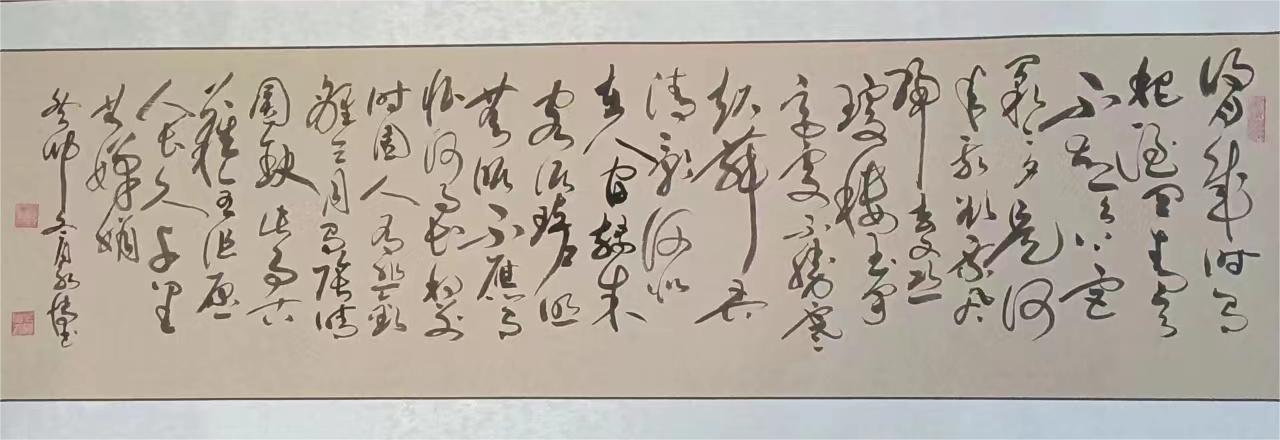 明月幾时有
把酒问青天
不知天上宫
阙今夕是何
年我欲乘风
归去又恐
瓊樓玉宇
高處不勝寒
起舞弄
清影何似
在人間轉朱
阁低绮户照
無眠不應有
恨何事长向别
时圆人有悲歡
離合月有陰晴
圓缺此事古
難全但愿
人长久千里
共嬋娟
癸卯冬月